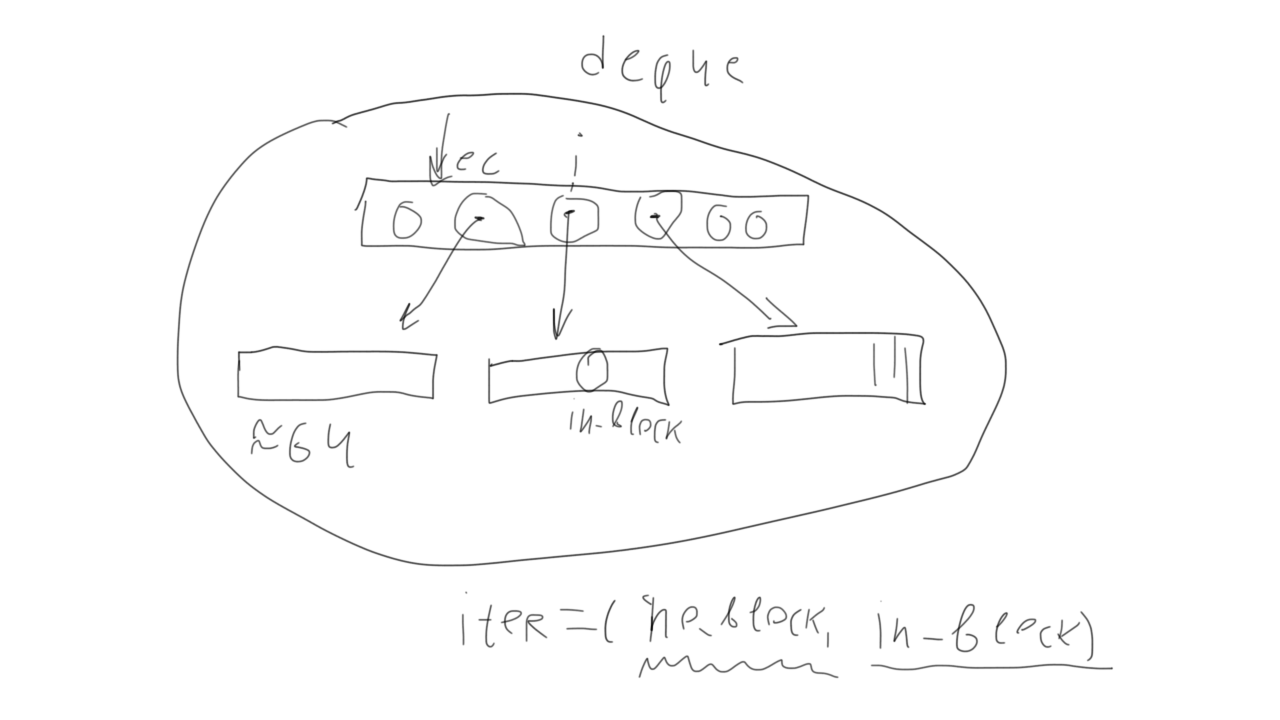 deque
vec
i
0 0 0
in-block
≈64
iter=( no_block, in-block)